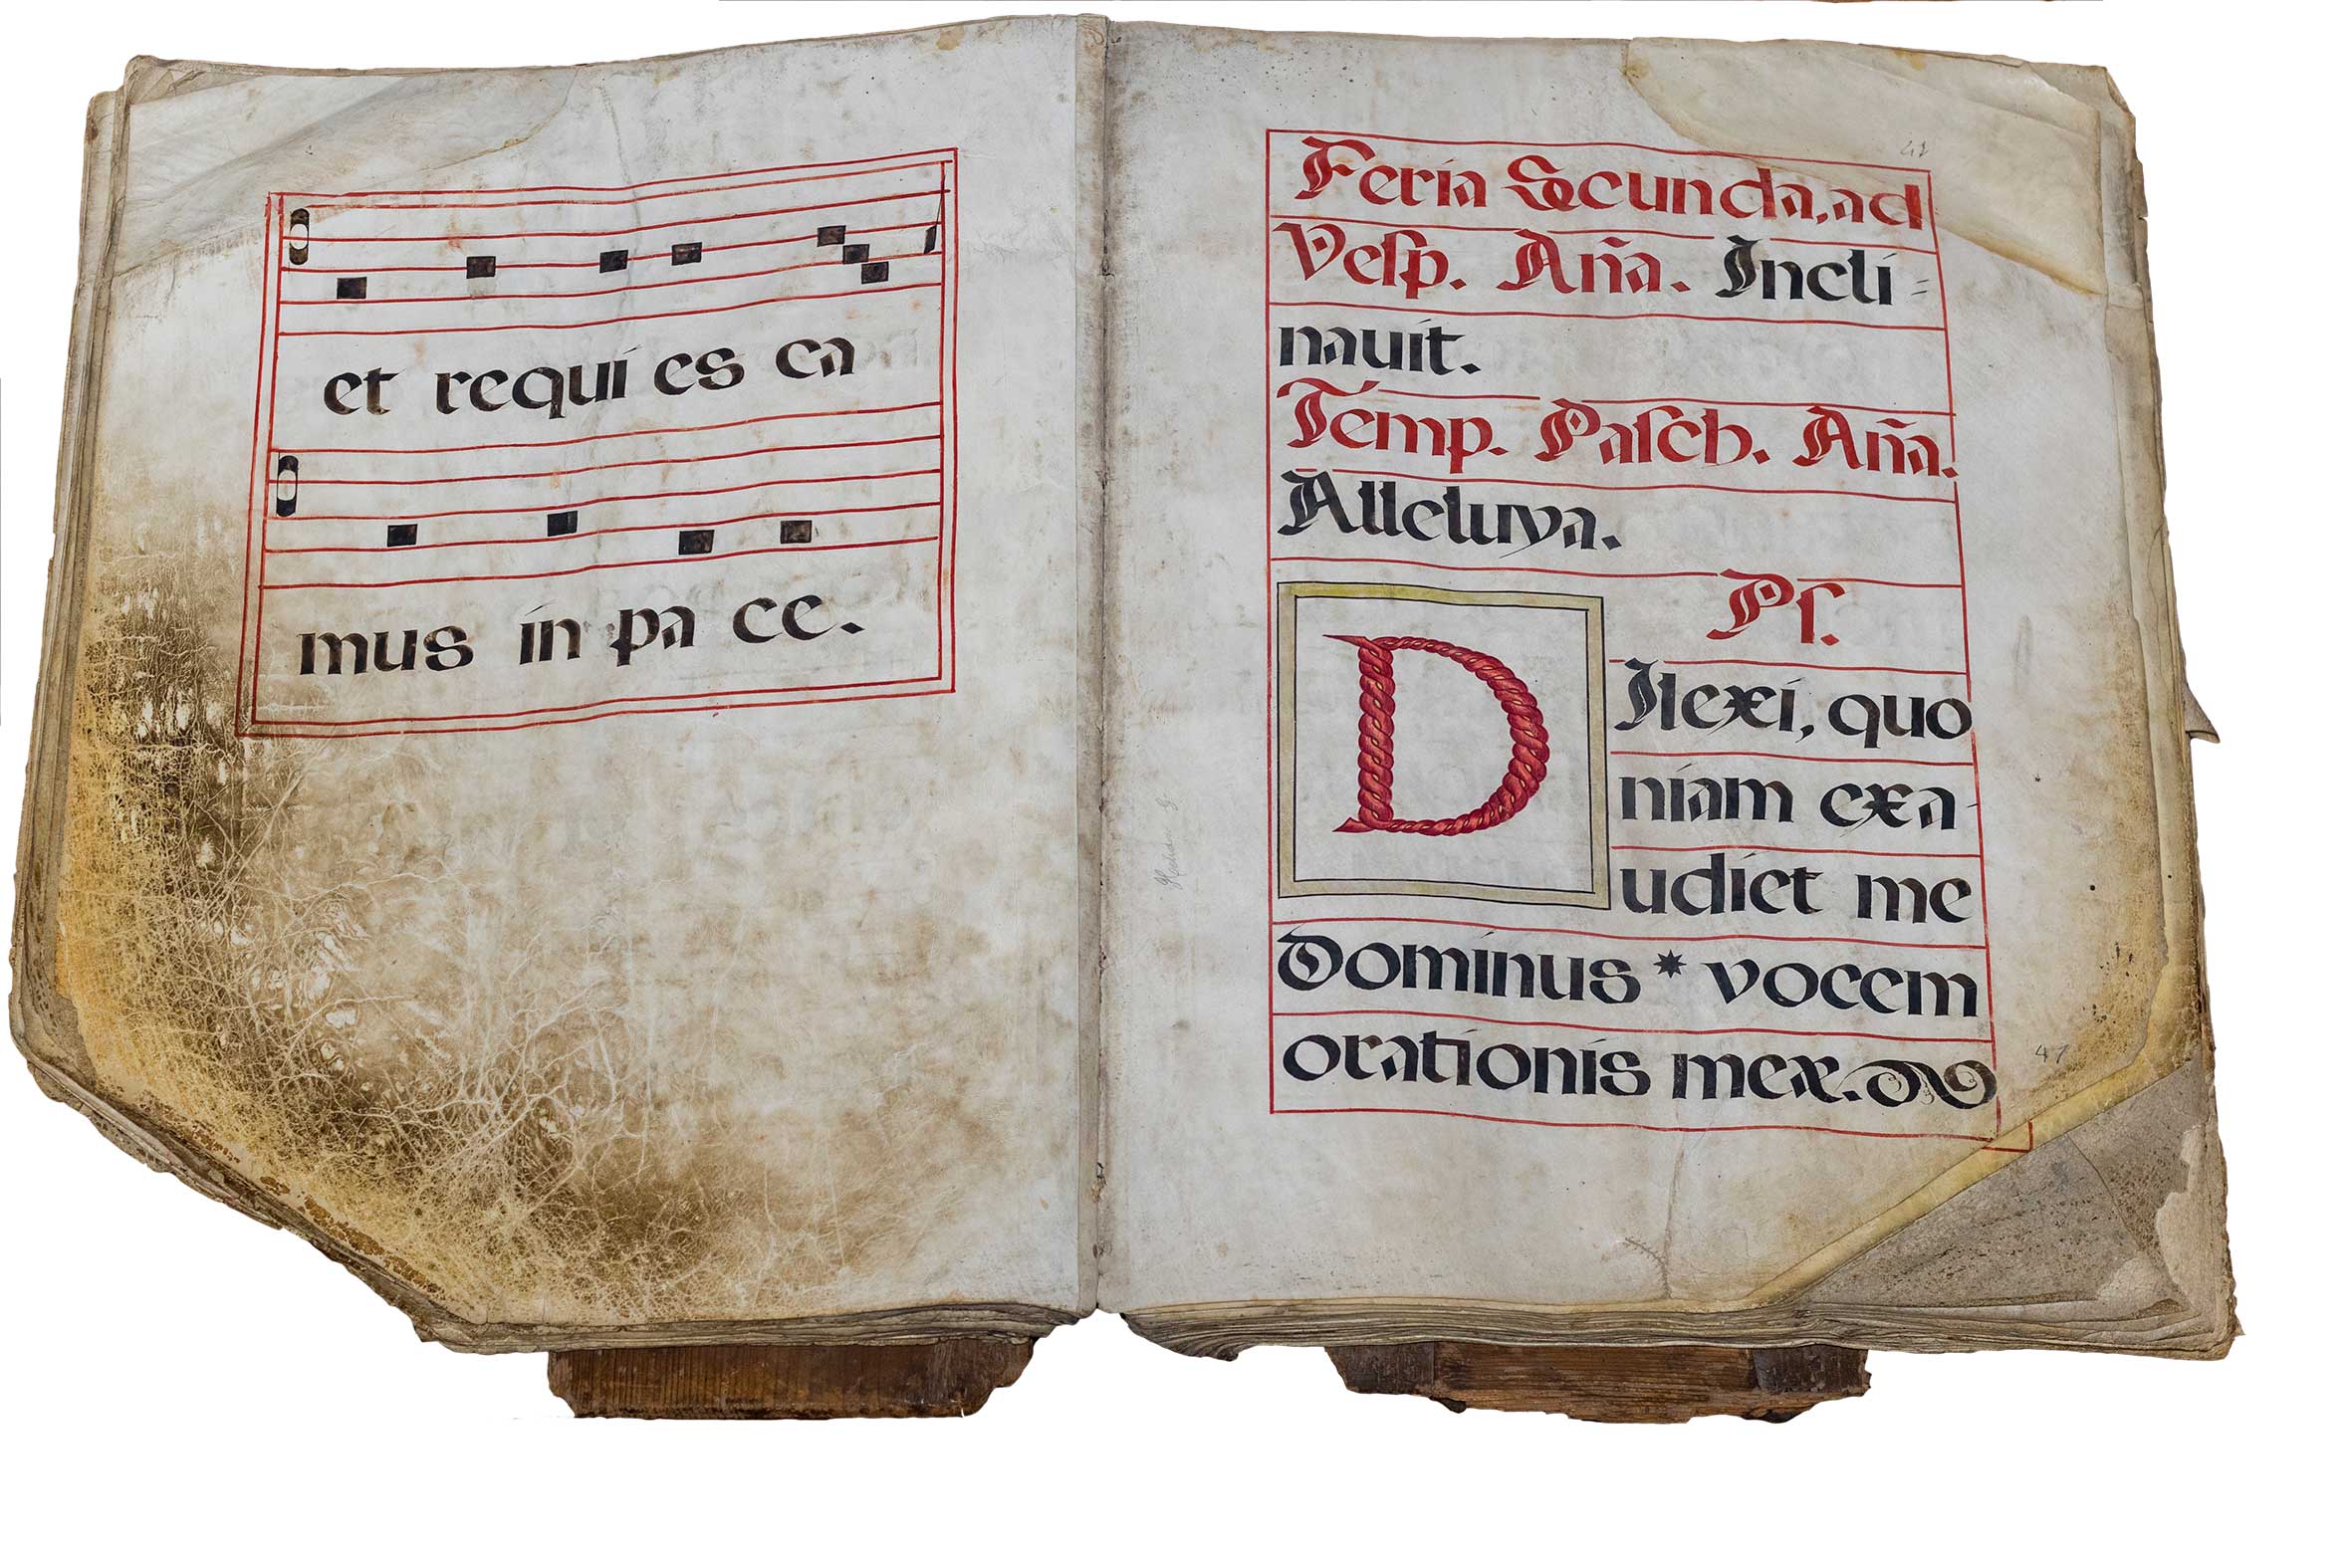 et requi es ca
mus in pa ce.
Feria Secunda, ad
Vesp. Aña. Incli=
nauit.
Temp. Pasch. Aña.
Alleluya.
Ps.
DIlexi, quo
niam exa-
udiet me
Dominus * vocem
orationis meæ.
47